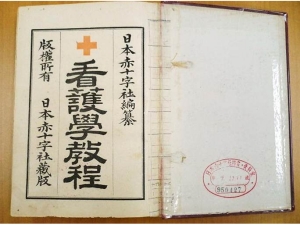 日本赤十字社編纂
看護學教程
版權所有 日本赤十字社藏版